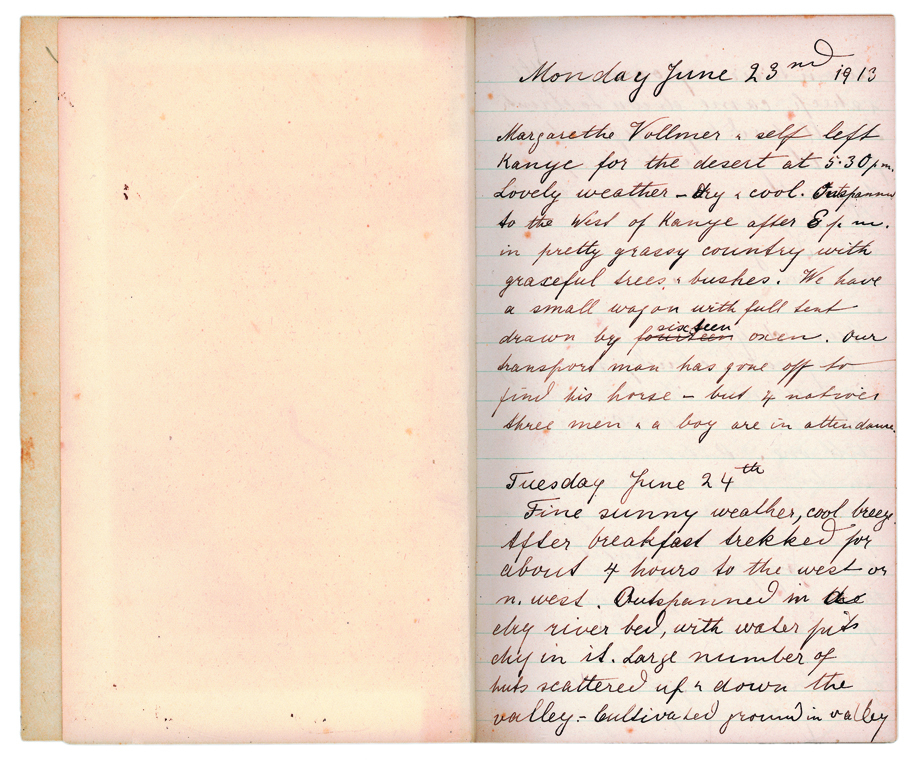 Monday June 23nd 1913
Margarethe Vollmer & self left
Kanye for the desert at 5.30 p.m.
Lovely weather – dry & cool. Outspanned
to the West of Kanye after 8 p.m.
in pretty grassy country with
graceful trees & bushes. We have
a small wagon with full tent
drawn by fourteen sixteen oxen. Our
transport man has gone off to
find his horse – but 4 natives
three men & a boy are in attendance.
Tuesday June 24th
Fine sunny weather, cool breeze
After breakfast trekked for
about 4 hours to the west or
n. west. Outspanned in the
dry river bed, with water pits
dry in it. Large number of
huts scattered up & down the
valley. – Cultivated ground in valley